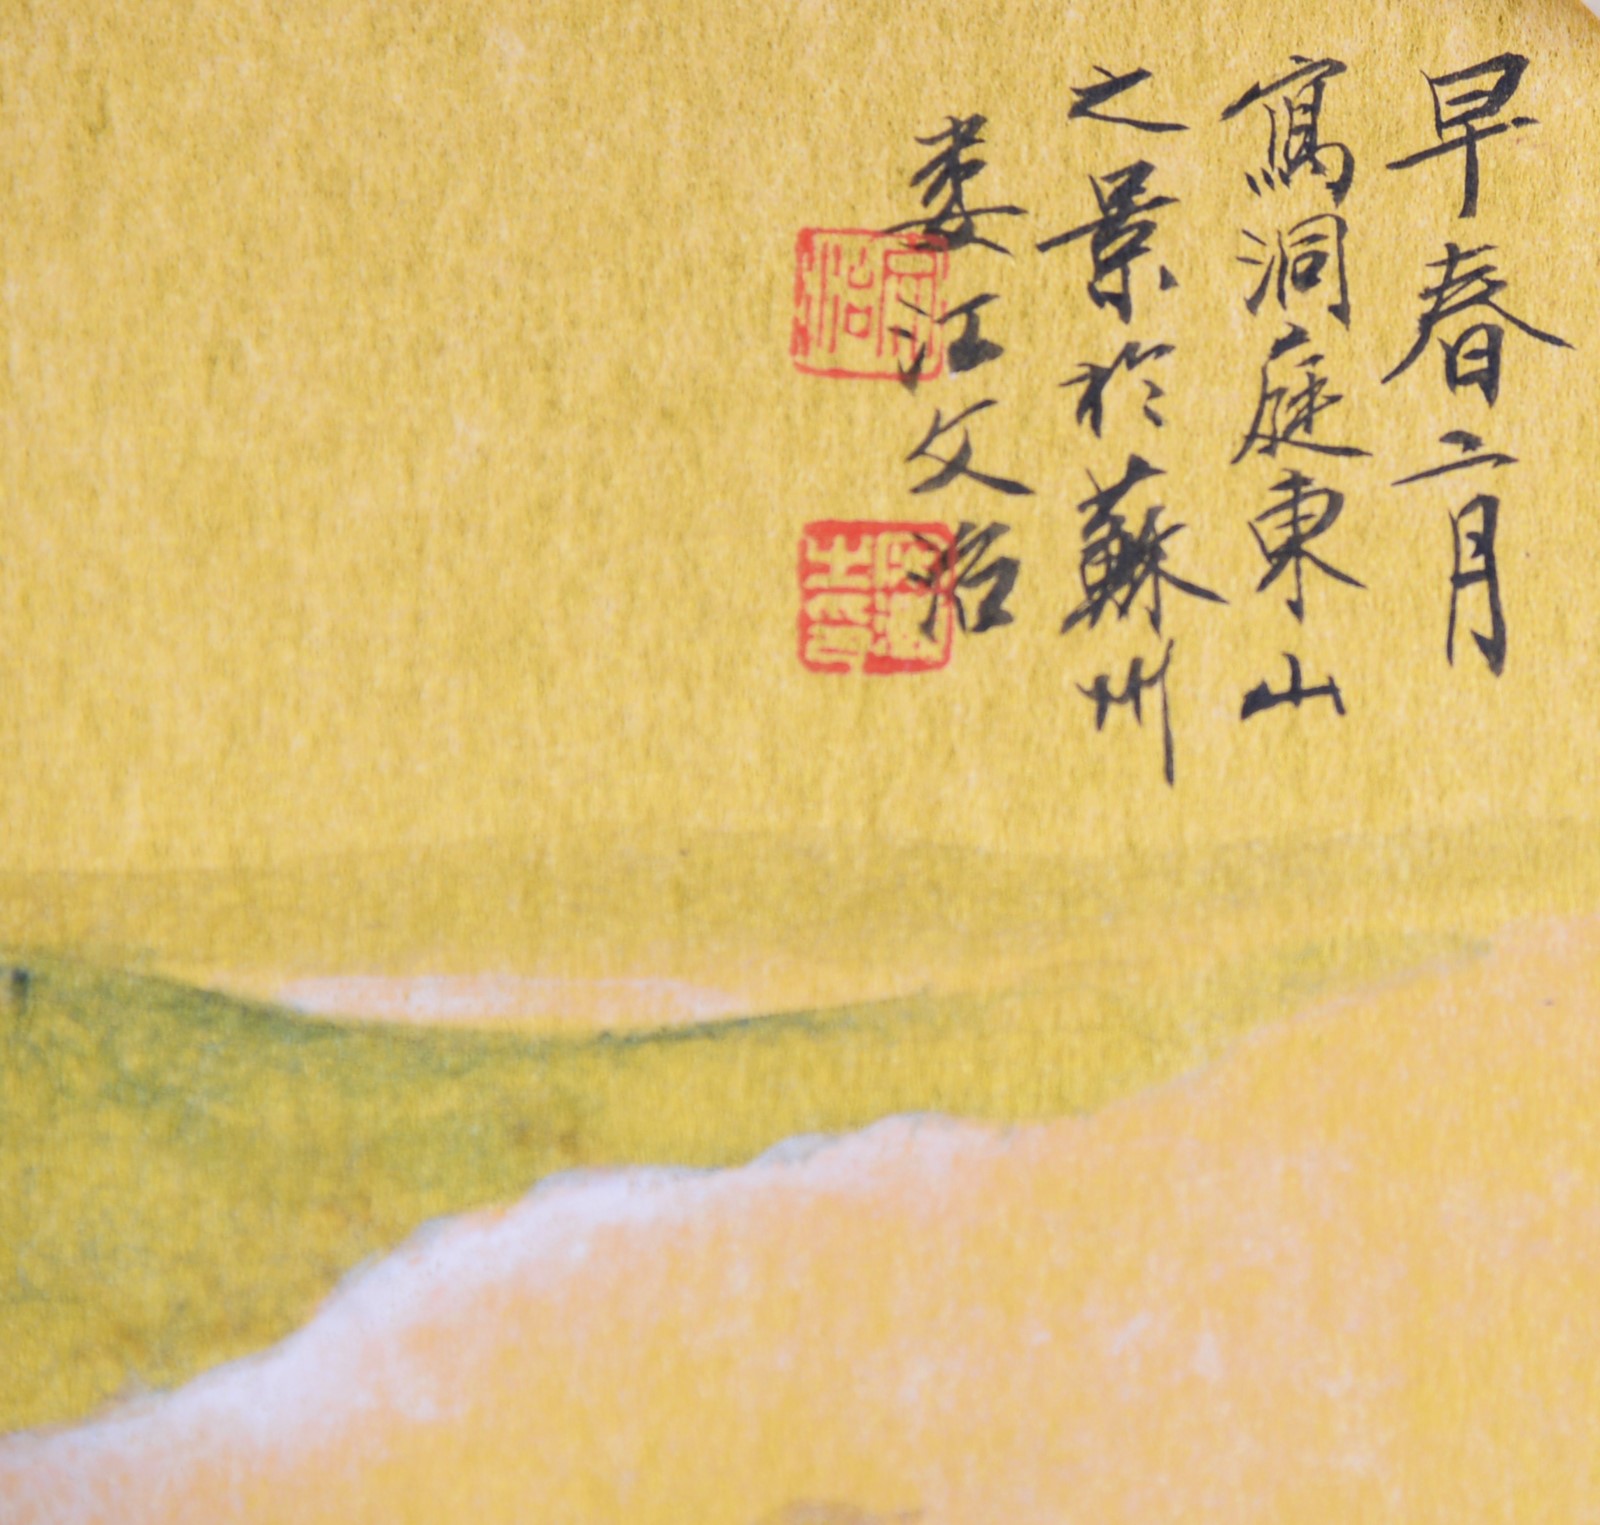 早春二月
寫洞庭東山
之景於蘇州
婁江文治